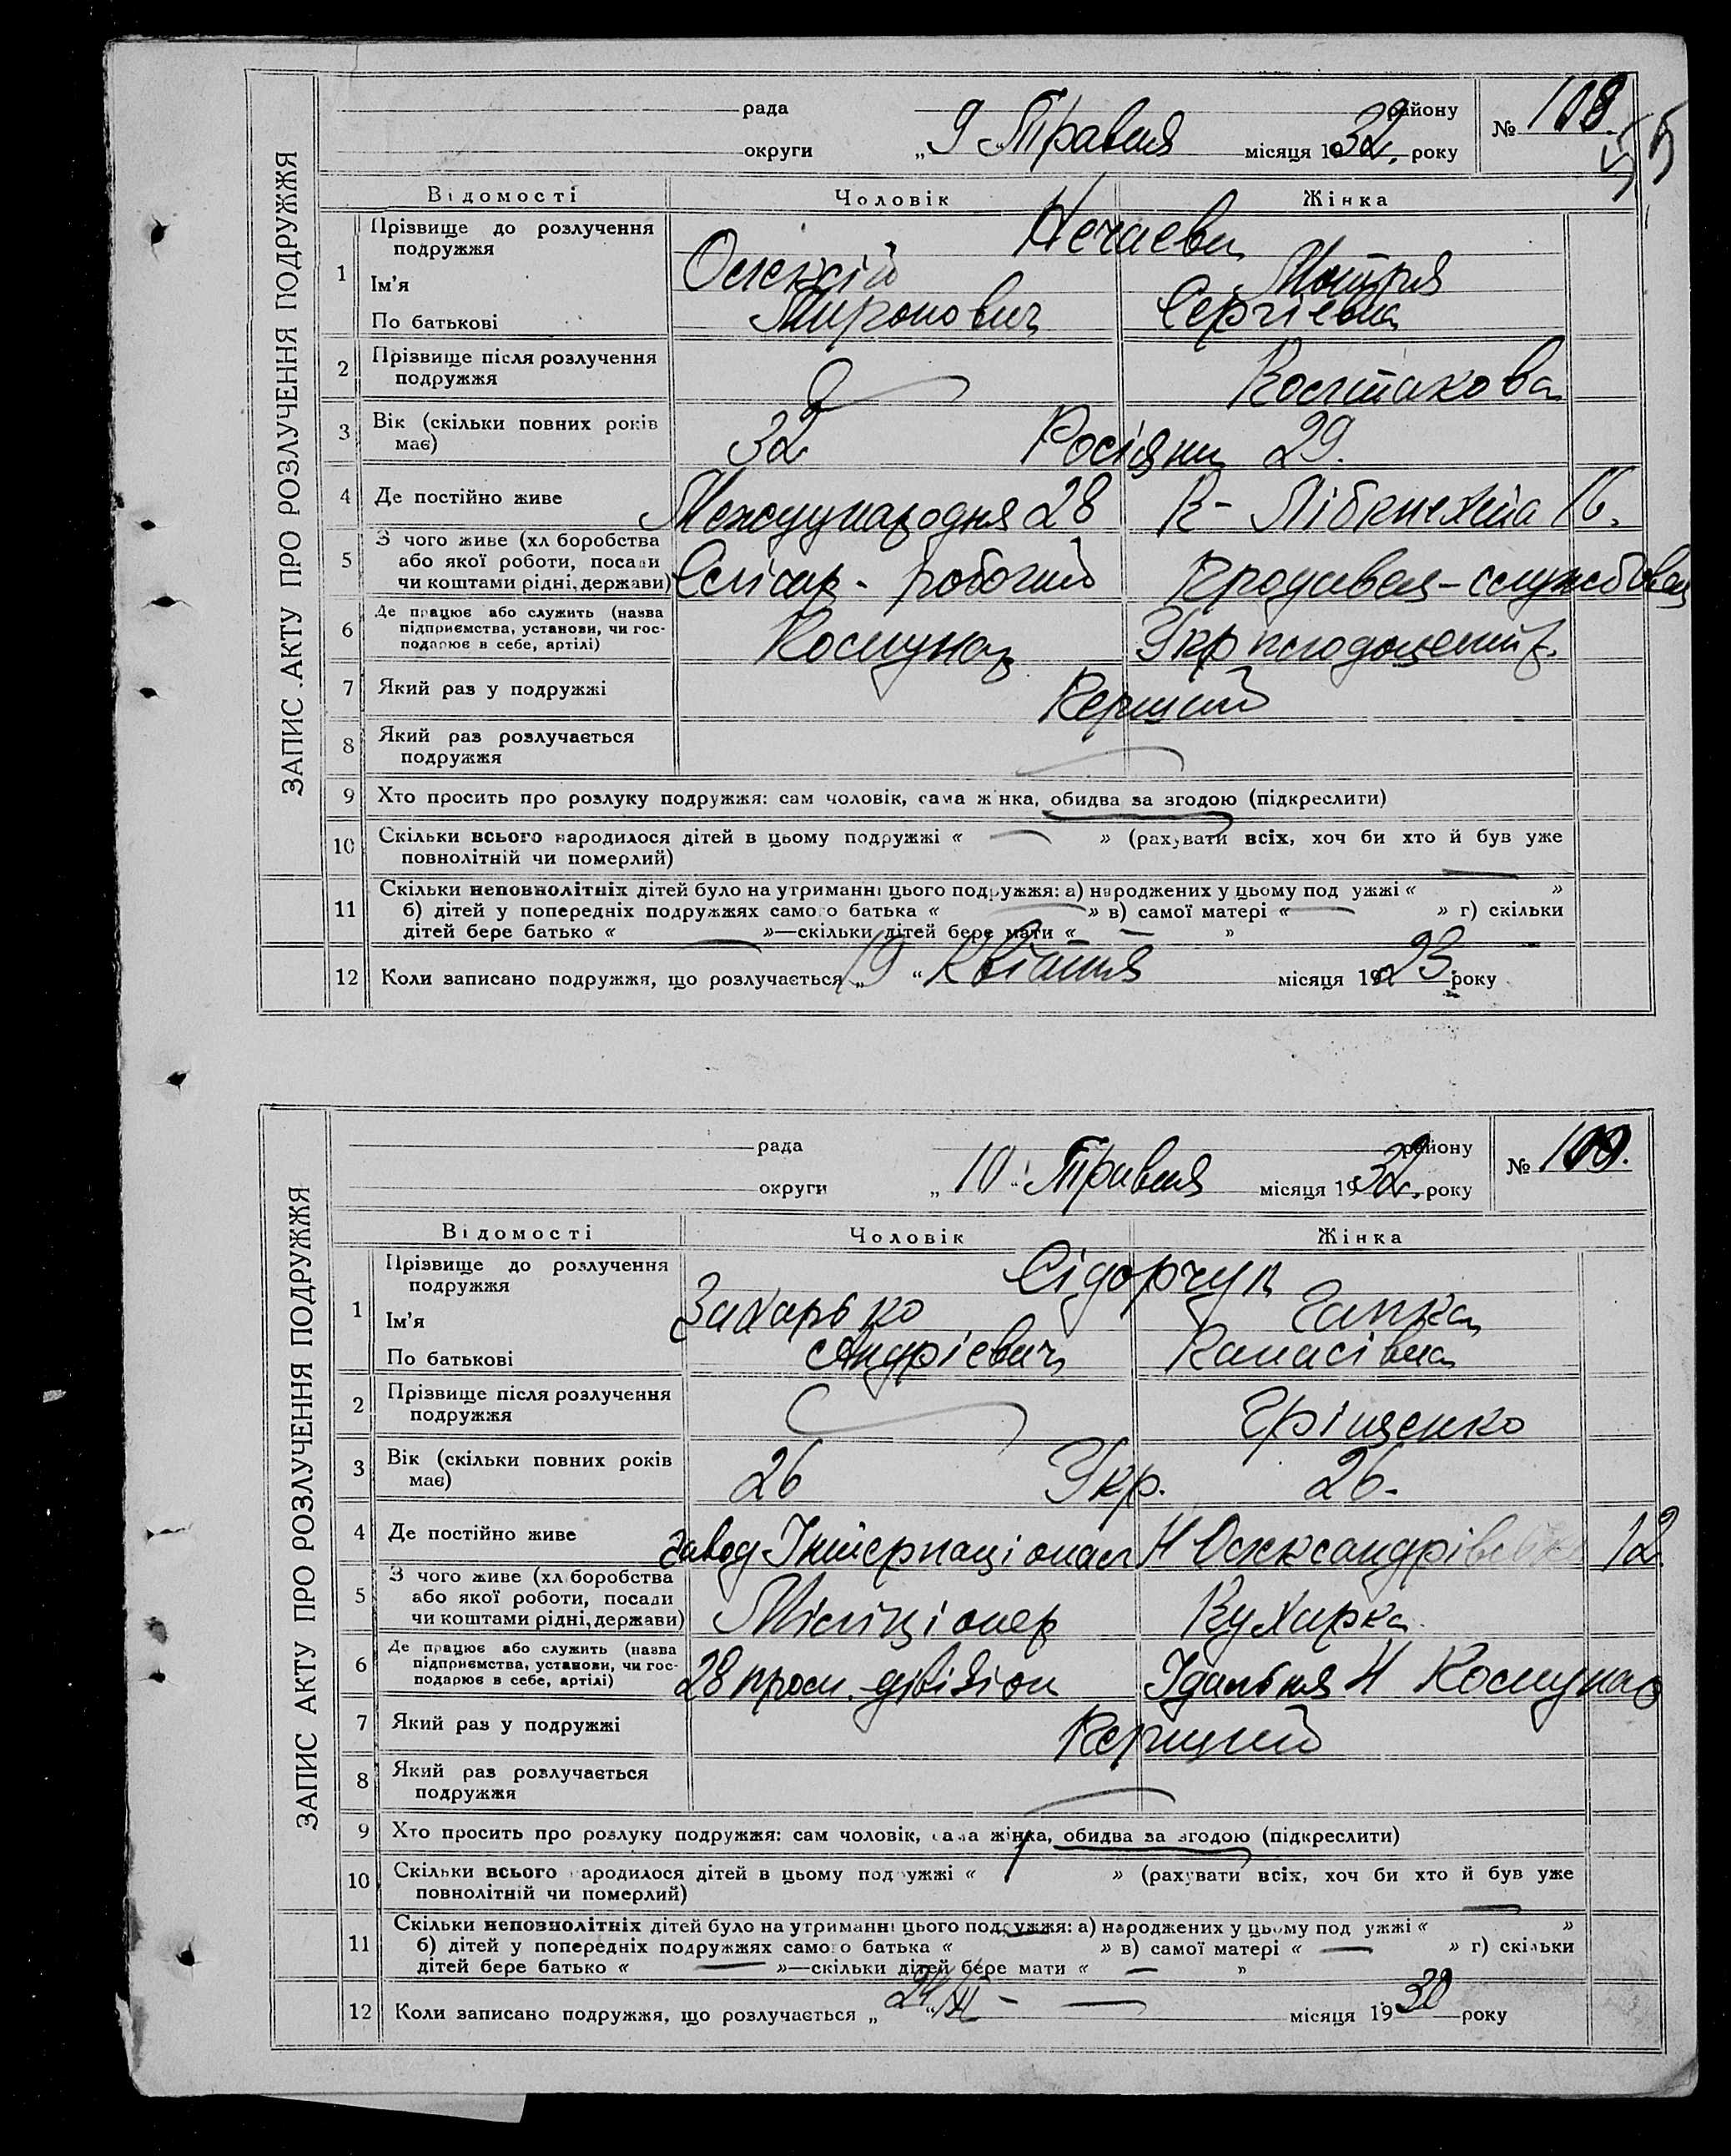 ЗАПИС АКТУ ПРО РОЗЛУЧЕННЯ ПОДРУЖЖЯ
рада района
округи „9 Травня місяця 1932. року
№ 108.
55
Відомості Чоловік Жінка
1 Прізвище до розлучення подружжя Нечаеви
Ім'я Олексій Мотря
По батькові Миронович Сергіевна
2 Прізвище після розлучення подружжя Костакова
3 Вік (скільки повних років має) 32 Росіяни 29.
4 Де постійно живе Междуународня 28 К- Лібкнехта 16.
5 З чого живе (хлıборобства або якої роботи, посади чи коштами рідні, держави) Слісар - робочий продавец - службовец
6 Де працює або служить (назва підприємства, установи, чи господарює в себе, артілі) Комунар
7 Який раз у подружжі Перший
8 Який раз розлучається подружжя
9 Хто просить про розлуку подружжя: сам чоловік, сама жінка, обидва за згодою (підкреслити)
10 Скільки всього народилося дітей в цьому подружжі « — » (рахувати всіх, хоч би хто й був уже
повнолітній чи померлий)
11 Скільки неповнолітніх дітей було на утриманні цього подружжя: а) народжених у цьому подружжі « — »
б) дітей у попередніх подружжях самого батька « — » в) самої матері « — » г) скільки
дітей бере батько « — »—скільки дітей бере мати « — »
12 Коли записано подружжя, що розлучається „19“ Квітня місяця 1923. року
ЗАПИС АКТУ ПРО РОЗЛУЧЕННЯ ПОДРУЖЖЯ
рада району
округи „10“ Травня місяця 1932. року
№ 109.
Відомості Чоловік Жінка
1 Прізвище до розлучення подружжя Сідорчук
Ім'я Захарько Гапка
По батькові Андріевич Панасівна
2 Прізвище після розлучення подружжя Гріщенко
3 Вік (скільки повних років має) 26 Укр. 26.
4 Де постійно живе завод Інтернаціонал Н Олександрівськ 12.
5 З чого живе (хліборобства або якої роботи, посади чи коштами рідні, держави) Міліціонер Кухарка.
6 Де працює або служить (назва підприємства, установи, чи господарює в себе, артілі) 28 пром. дівізіон Їдальня Н Комунар
7 Який раз у подружжі Перший
8 Який раз розлучається подружжя
9 Хто просить про розлуку подружжя: сам чоловік, сама жінка, обидва за згодою (підкреслити)
10 Скільки всього народилося дітей в цьому подружжі « 1 » (рахувати всіх, хоч би хто й був уже
повнолітній чи померлий)
11 Скільки неповнолітніх дітей було на утриманні цього подружжя: а) народжених у цьому подружжі « — »
б) дітей у попередніх подружжях самого батька « » в) самої матері « — » г) скільки
дітей бере батько « — »—скільки дітей бере мати « — »
12 Коли записано подружжя, що розлучається „24/XI - — місяця 1930 року